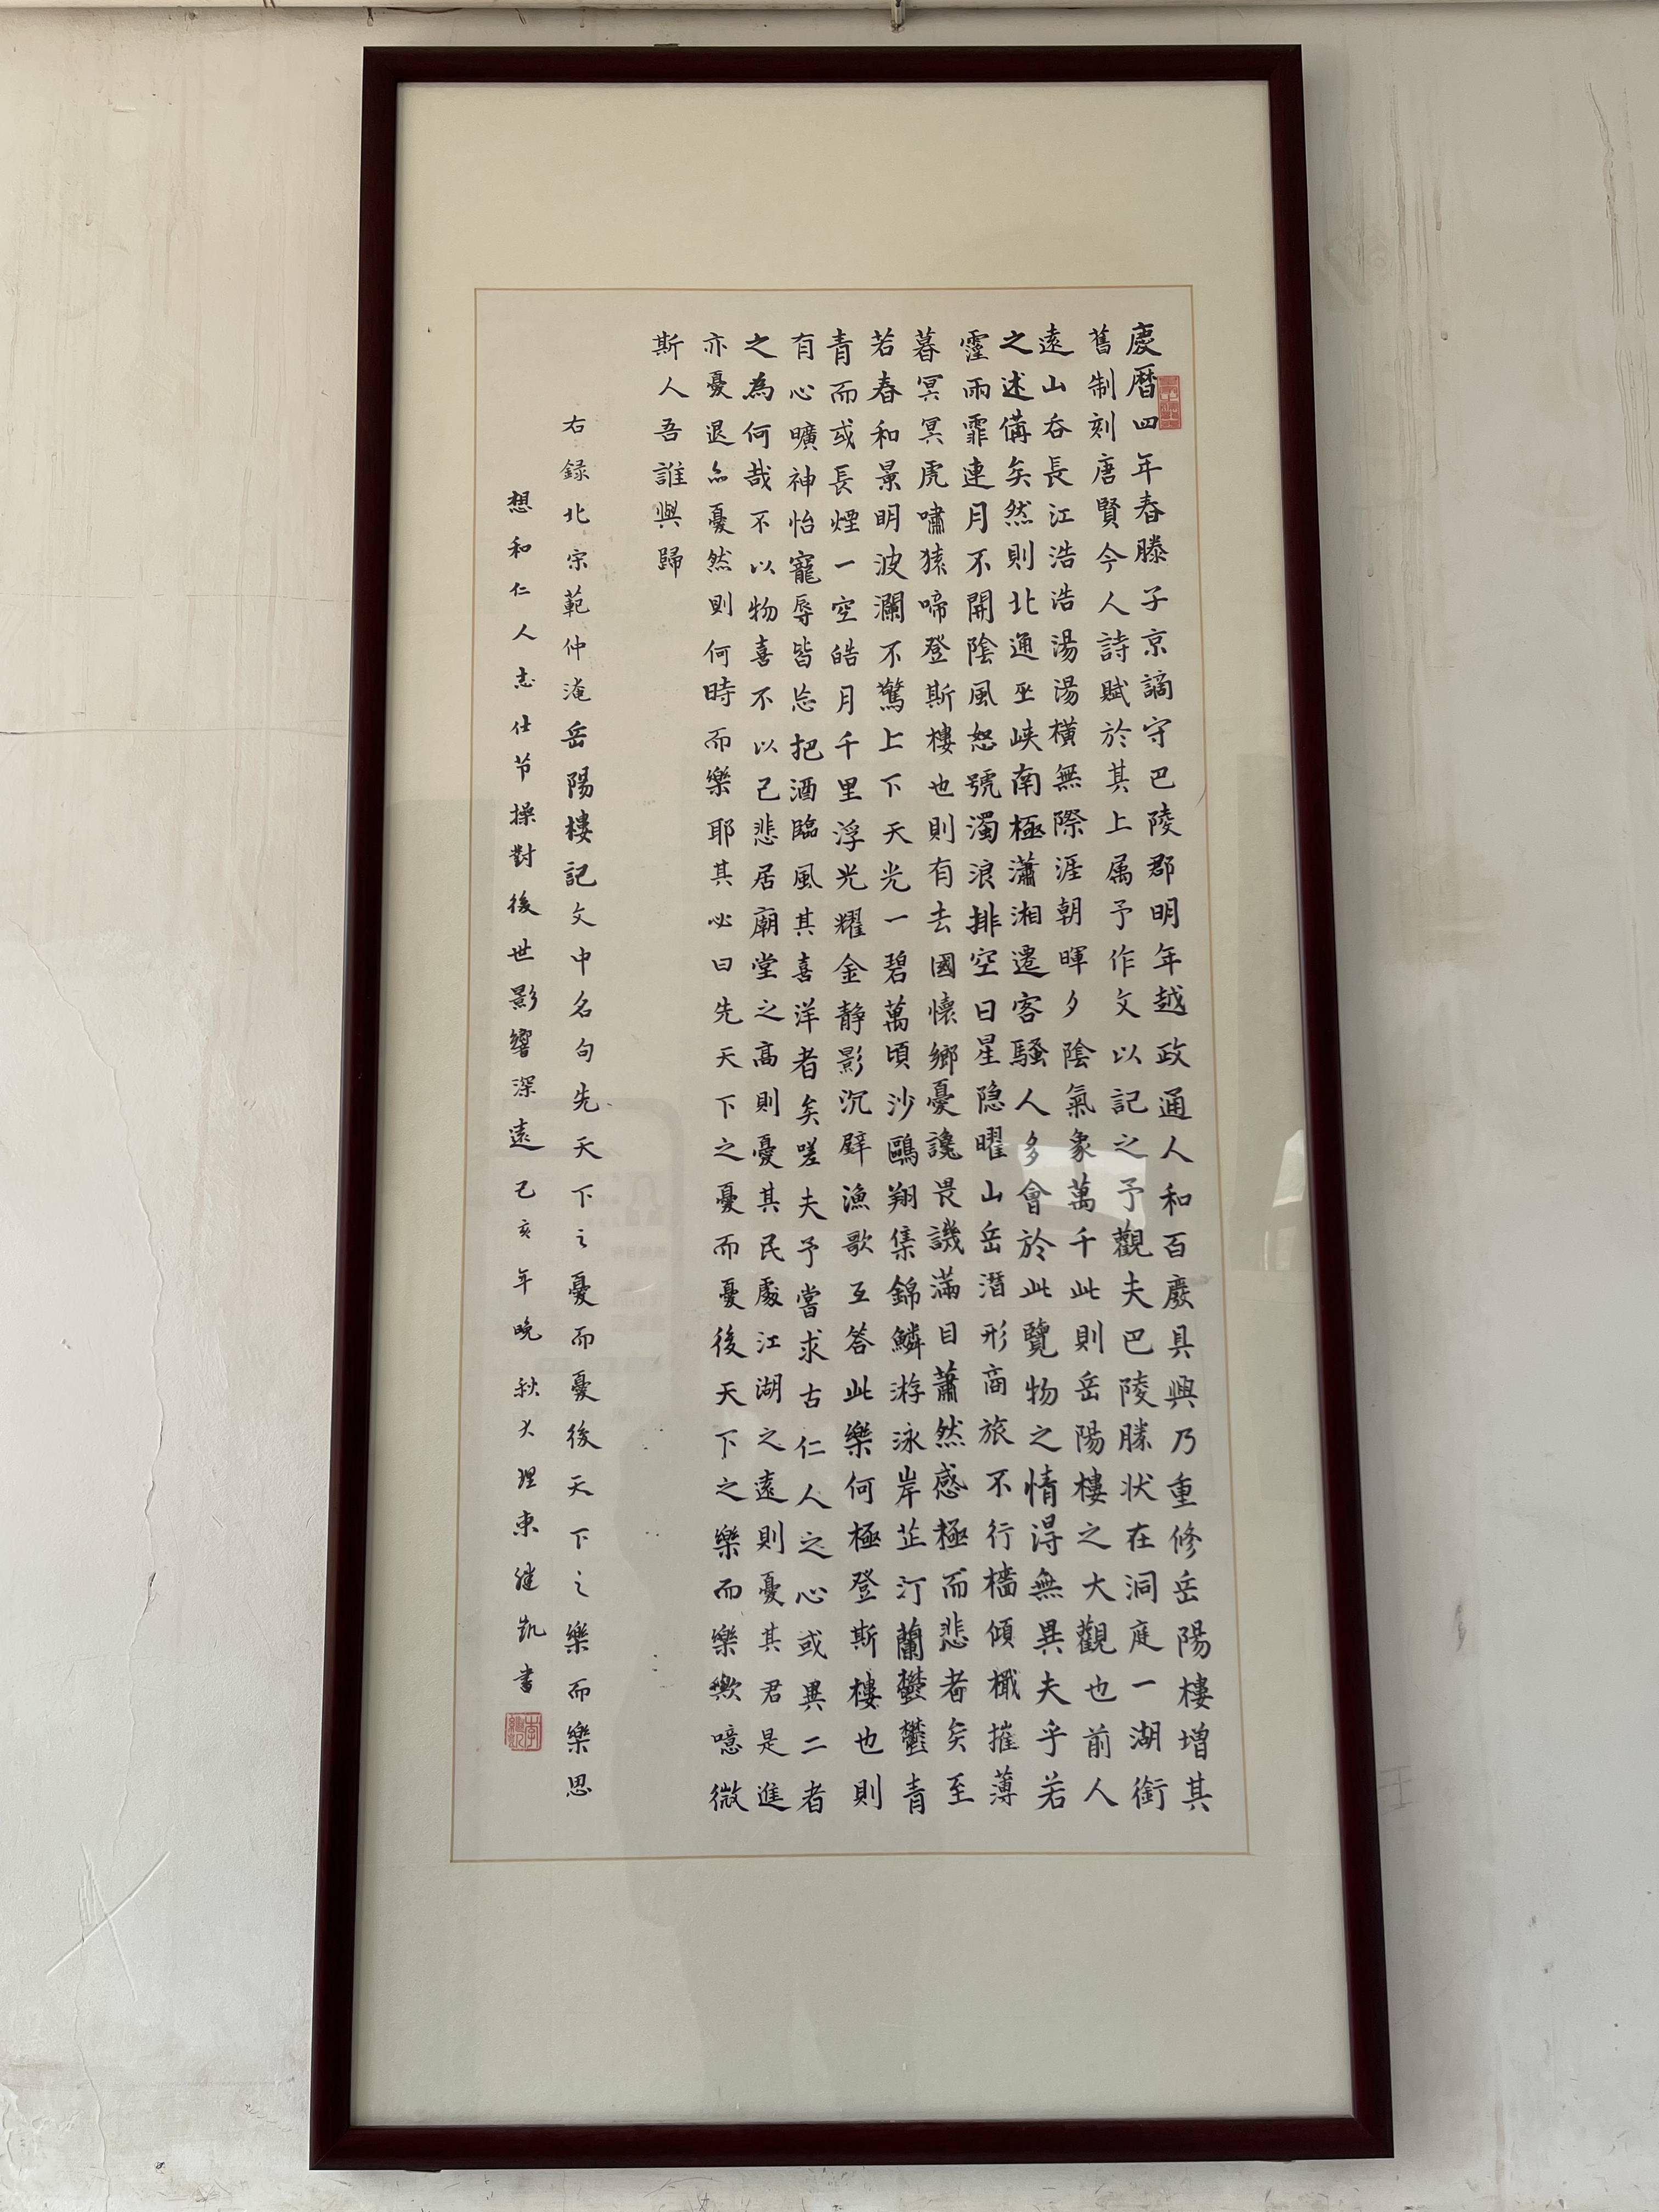 慶曆四年春滕子京謫守巴陵郡明年越政通人和百廢具興乃重修岳陽樓增其
舊制刻唐賢今人詩賦於其上属予作文以記之予觀夫巴陵勝状在洞庭一湖銜
遠山吞長江浩浩湯湯橫無際涯朝暉夕陰氣象萬千此則岳陽樓之大觀也前人
之述備矣然則北通巫峡南極瀟湘遷客騷人多會於此覽物之情得無異夫乎若
霪雨霏連月不開陰風怒號濁浪排空日星隐曜山岳潛形商旅不行檣傾檝摧薄
暮冥冥虎嘯猿啼登斯樓也則有去國懷鄉憂讒畏譏滿目蕭然感極而悲者矣至
若春和景明波瀾不驚上下天光一碧萬頃沙鷗翔集錦鱗游泳岸芷汀蘭鬱鬱青
青而或長煙一空皓月千里浮光耀金静影沉璧漁歌互答此樂何極登斯樓也則
有心曠神怡寵辱皆忘把酒臨風其喜洋者矣嗟夫予嘗求古仁人之心或異二者
之為何哉不以物喜不以己悲居廟堂之高則憂其民處江湖之遠則憂其君是進
亦憂退亦憂然則何時而樂耶其必曰先天下之憂而憂後天下之樂而樂歟噫微
斯人吾誰與歸
右録北宗範仲淹岳陽樓記文中名句先天下之憂而憂後天下之樂而樂思
想和仁人志仕节操對後世影響深遠己亥年晚秋大理東继凯書